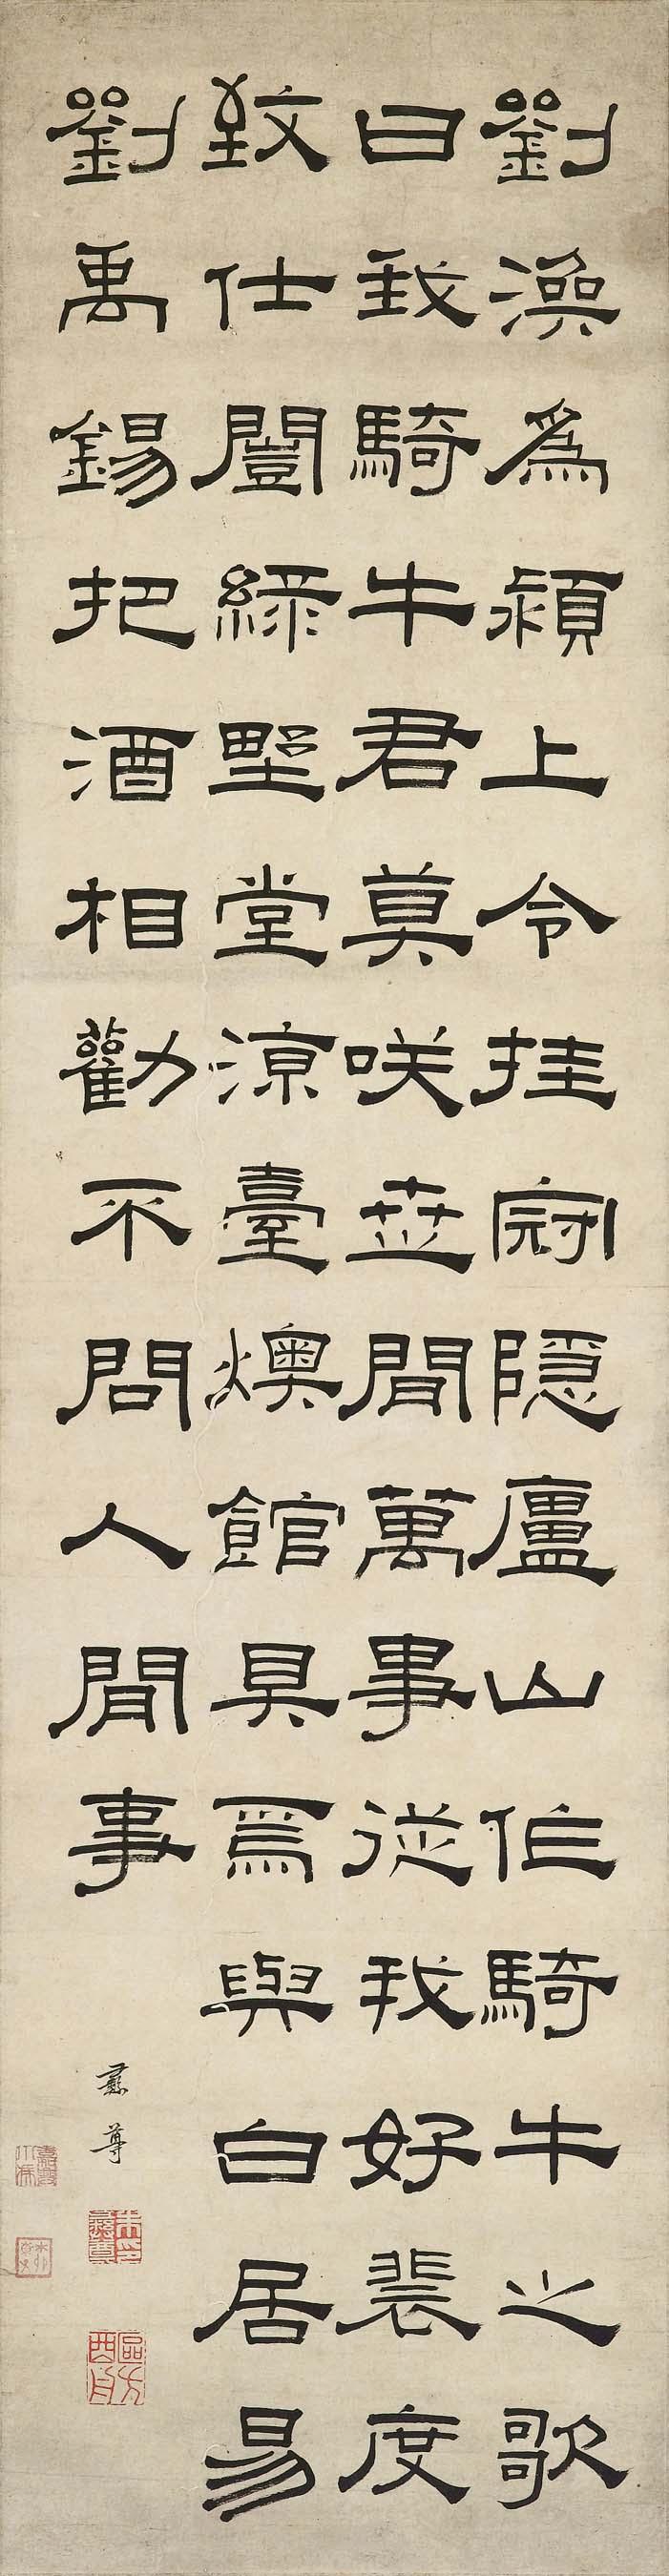 劉渙為潁上令挂冠隱廬山作騎牛之歌
曰我騎牛君莫咲世間萬事從我好裴度
致仕闓綠野堂涼臺燠館具焉與白居易
劉禹錫把酒相勸不問人間事
彝尊